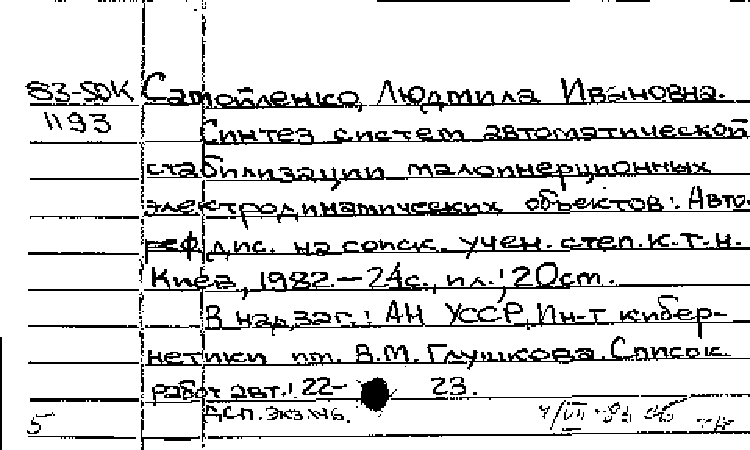 83-5ДК Самойленко, Людмила Ивановна.
1193
Синтез систем автоматической
стабилизации малоинерционных
электродинамических объектов: Авто-
реф. дис. на соиск. учен. степ. к.т.н.
Киев, 1982. — 24с., ил.; 20см.
В надзаг.: АН УССР, Ин-т кибер-
нетики им. В.М. Глушкова. Список
работ авт.: 22- 23.
ДСП. Экз. №6.
5